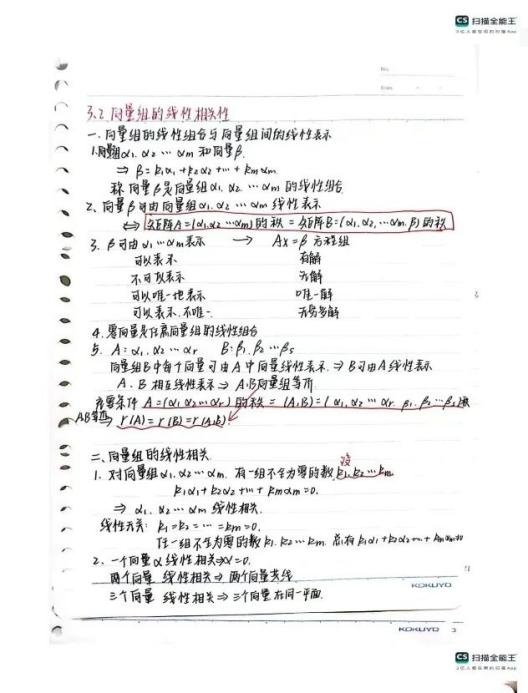 CS 扫描全能王
3亿人都在用的扫描App
No.
Date
3.2 向量组的线性相关性
一、向量组的线性组合与向量组间的线性表示
1.向量组α₁. α₂ ⋯ αm 和向量β.
⇒ β = k₁α₁ + k₂α₂ +⋯+ kmαm.
称向量β是向量组α₁. α₂. ⋯ αm 的线性组合
2. 向量β可由向量组α₁. α₂ ⋯ αm 线性表示
⇔ 矩阵A=(α₁.α₂ ⋯αm)的秩 = 矩阵B=(α₁, α₂, ⋯αm. β)的秩
3. β可由α₁⋯αm表示 → Ax=β 方程组
可以表示 有解
不可以表示 无解
可以唯一地表示 唯一解
可以表示.不唯一. 无穷多解
4. 零向量是任意向量组的线性组合
5. A: α₁. α₂ ⋯ αr B: β₁. β₂ ⋯ βs
向量组B中每个向量可由A中向量线性表示. ⇒ B可由A线性表示
A. B 相互线性表示 ⇒ A.B向量组等价
充要条件 A=(α₁, α₂ ⋯ αr)的秩 = (A,B)=(α₁, α₂ ⋯ αr. β₁. β₂ ⋯ βs)
A.B等价 ⇒ r(A)=r(B)=r(A,B)
二、向量组的线性相关
1. 对向量组α₁. α₂ ⋯ αm. 有一组不全为零的数k₁. k₂ ⋯ km
k₁α₁ + k₂α₂ +⋯+ kmαm = 0.
⇒ α₁. α₂ ⋯ αm 线性相关.
线性无关: k₁ = k₂ = ⋯ = km = 0.
任一组不全为零的数k₁. k₂ ⋯ km. 总有k₁α₁ + k₂α₂ +⋯+ kmαm≠0
2. 一个向量α线性相关⇒α=0.
两个向量 线性相关 ⇒ 两个向量共线
三个向量 线性相关 ⇒ 三个向量在同一平面.
KOKUYO
KOKUYO 3
CS 扫描全能王
3亿人都在用的扫描App